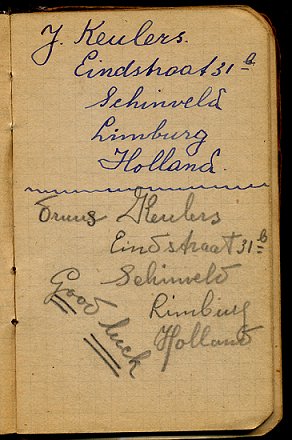 J. Keulers.
Eindstraat 31 b
Schinveld
Limburg
Holland.
Truus Keulers
Eindstraat 31 b
Schinveld
Limburg
Holland
Good luck